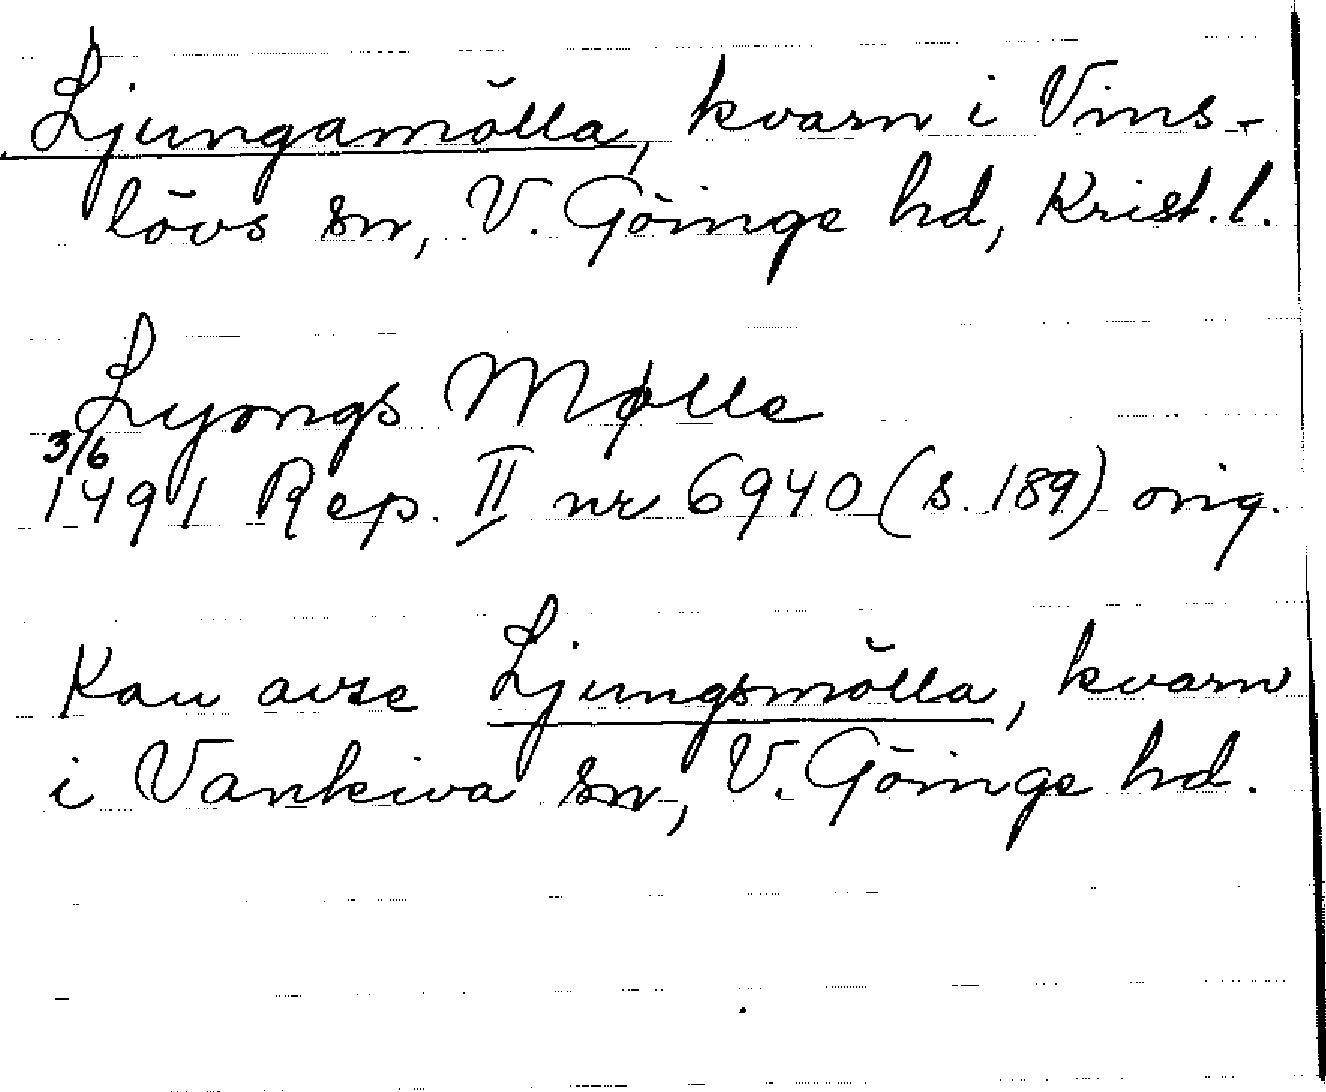 Ljungamölla, kvarn i Vins-
lövs sn, V. Göinge hd, Krist. l.
Lyongs Mølle
3/6
1491 Rep. II nr 6940 (s. 189) orig.
Kan avse Ljungsmölla, kvarn
i Vankiva sn, V. Göinge hd.